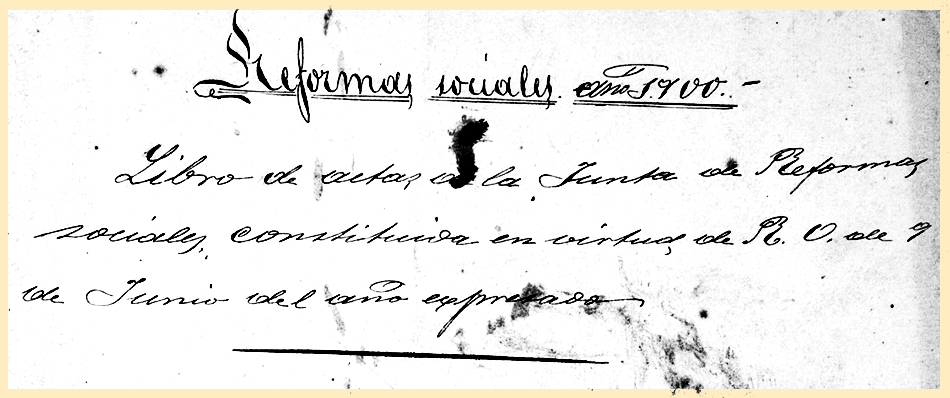 Reformas sociales. año 1900.-
Libro de actas de la Junta de Reformas
sociales, constituida en virtud de R. O. de 9
de Junio del año expresado